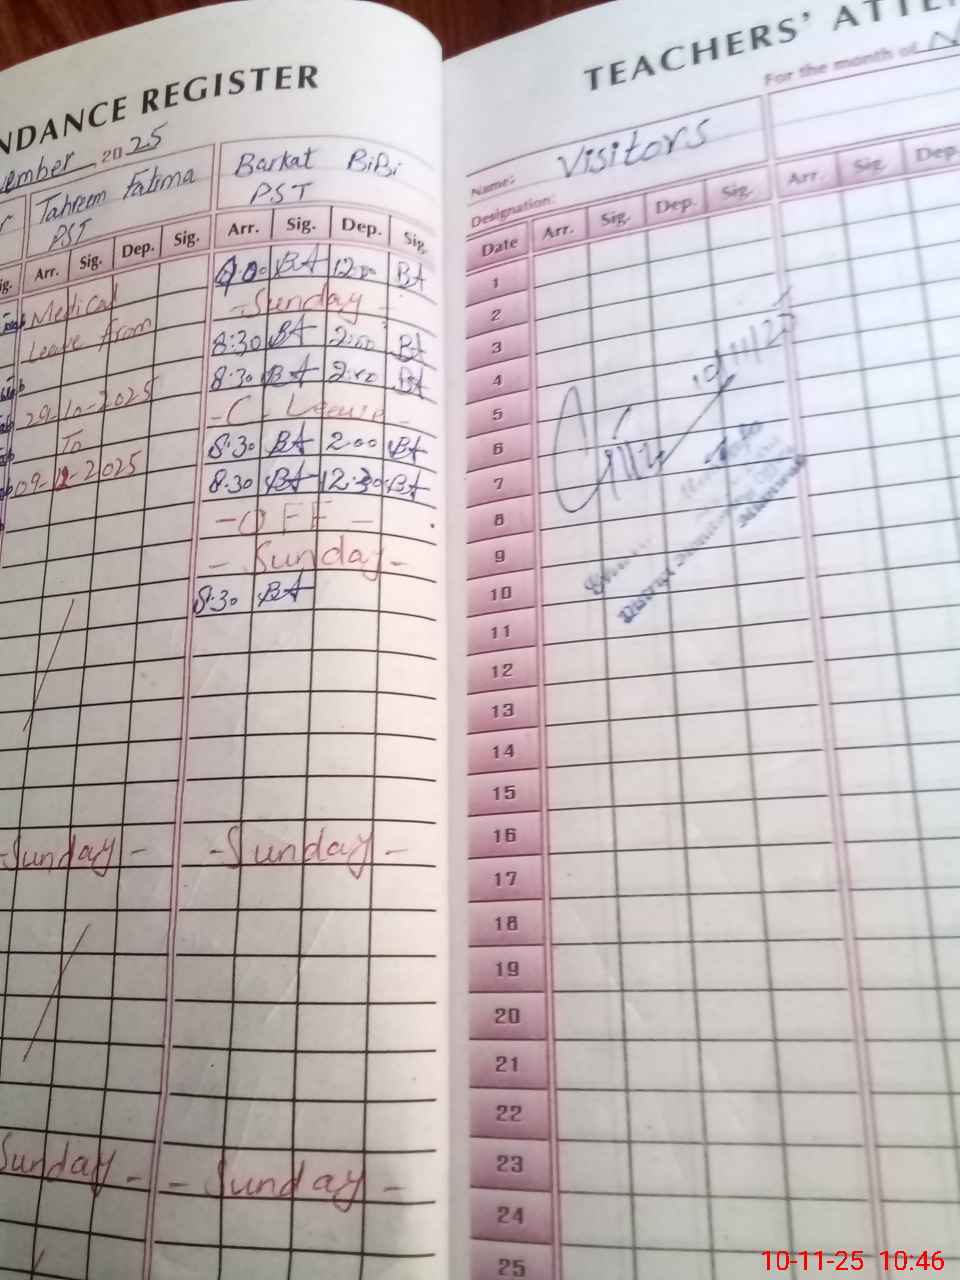 NDANCE REGISTER
vember 2025
Tahreem Fatima
PST
Barkat BiBi
PST
Arr. Sig. Dep. Sig.
Arr. Sig. Dep. Sig.
BA 12:00 BA
Medical
- Sunday -
Leave from
8:30 BA 2:00 BA
8:30 BA 2:00 BA
29-10-2025
- C - Leave -
To
8:30 BA 2:00 BA
2025
8:30 BA 12:30 BA
- OFF -
- Sunday -
8:30 BA
- Sunday -
- Sunday -
Sunday -
- Sunday -
TEACHERS' ATTE
For the month of N
Name: Visitors
Designation:
Date Arr. Sig. Dep. Sig. Arr. Sig. Dep.
1
2
3
4
5
6
7
8
9
10
11
12
13
14
15
16
17
18
19
20
21
22
23
24
25
10-11-25 10:46